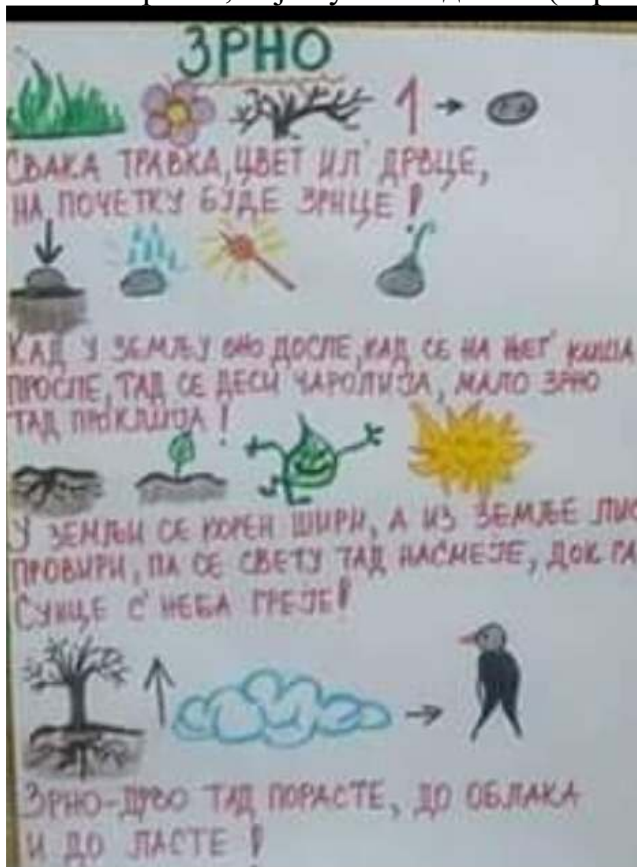 ЗРНО
1
СВАКА ТРАВКА, ЦВЕТ ИЛ' ДРВЦЕ,
НА ПОЧЕТКУ БУДЕ ЗРНЦЕ!
КАД У ЗЕМЉУ ОНО ДОСПЕ, КАД СЕ НА ЊЕГ' КИША
ПРОСПЕ, ТАД СЕ ДЕСИ ЧАРОЛИЈА, МАЛО ЗРНО
ТАД ПРОКЛИЈА!
У ЗЕМЉИ СЕ КОРЕН ШИРИ, А ИЗ ЗЕМЉЕ
ПРОВИРИ, ПА СЕ СВЕТУ ТАД НАСМЕЈЕ, ДОК ГА
СУНЦЕ С' НЕБА ГРЕЈЕ!
ЗРНО-ДРВО ТАД ПОРАСТЕ, ДО ОБЛАКА
И ДО ЛАСТЕ!